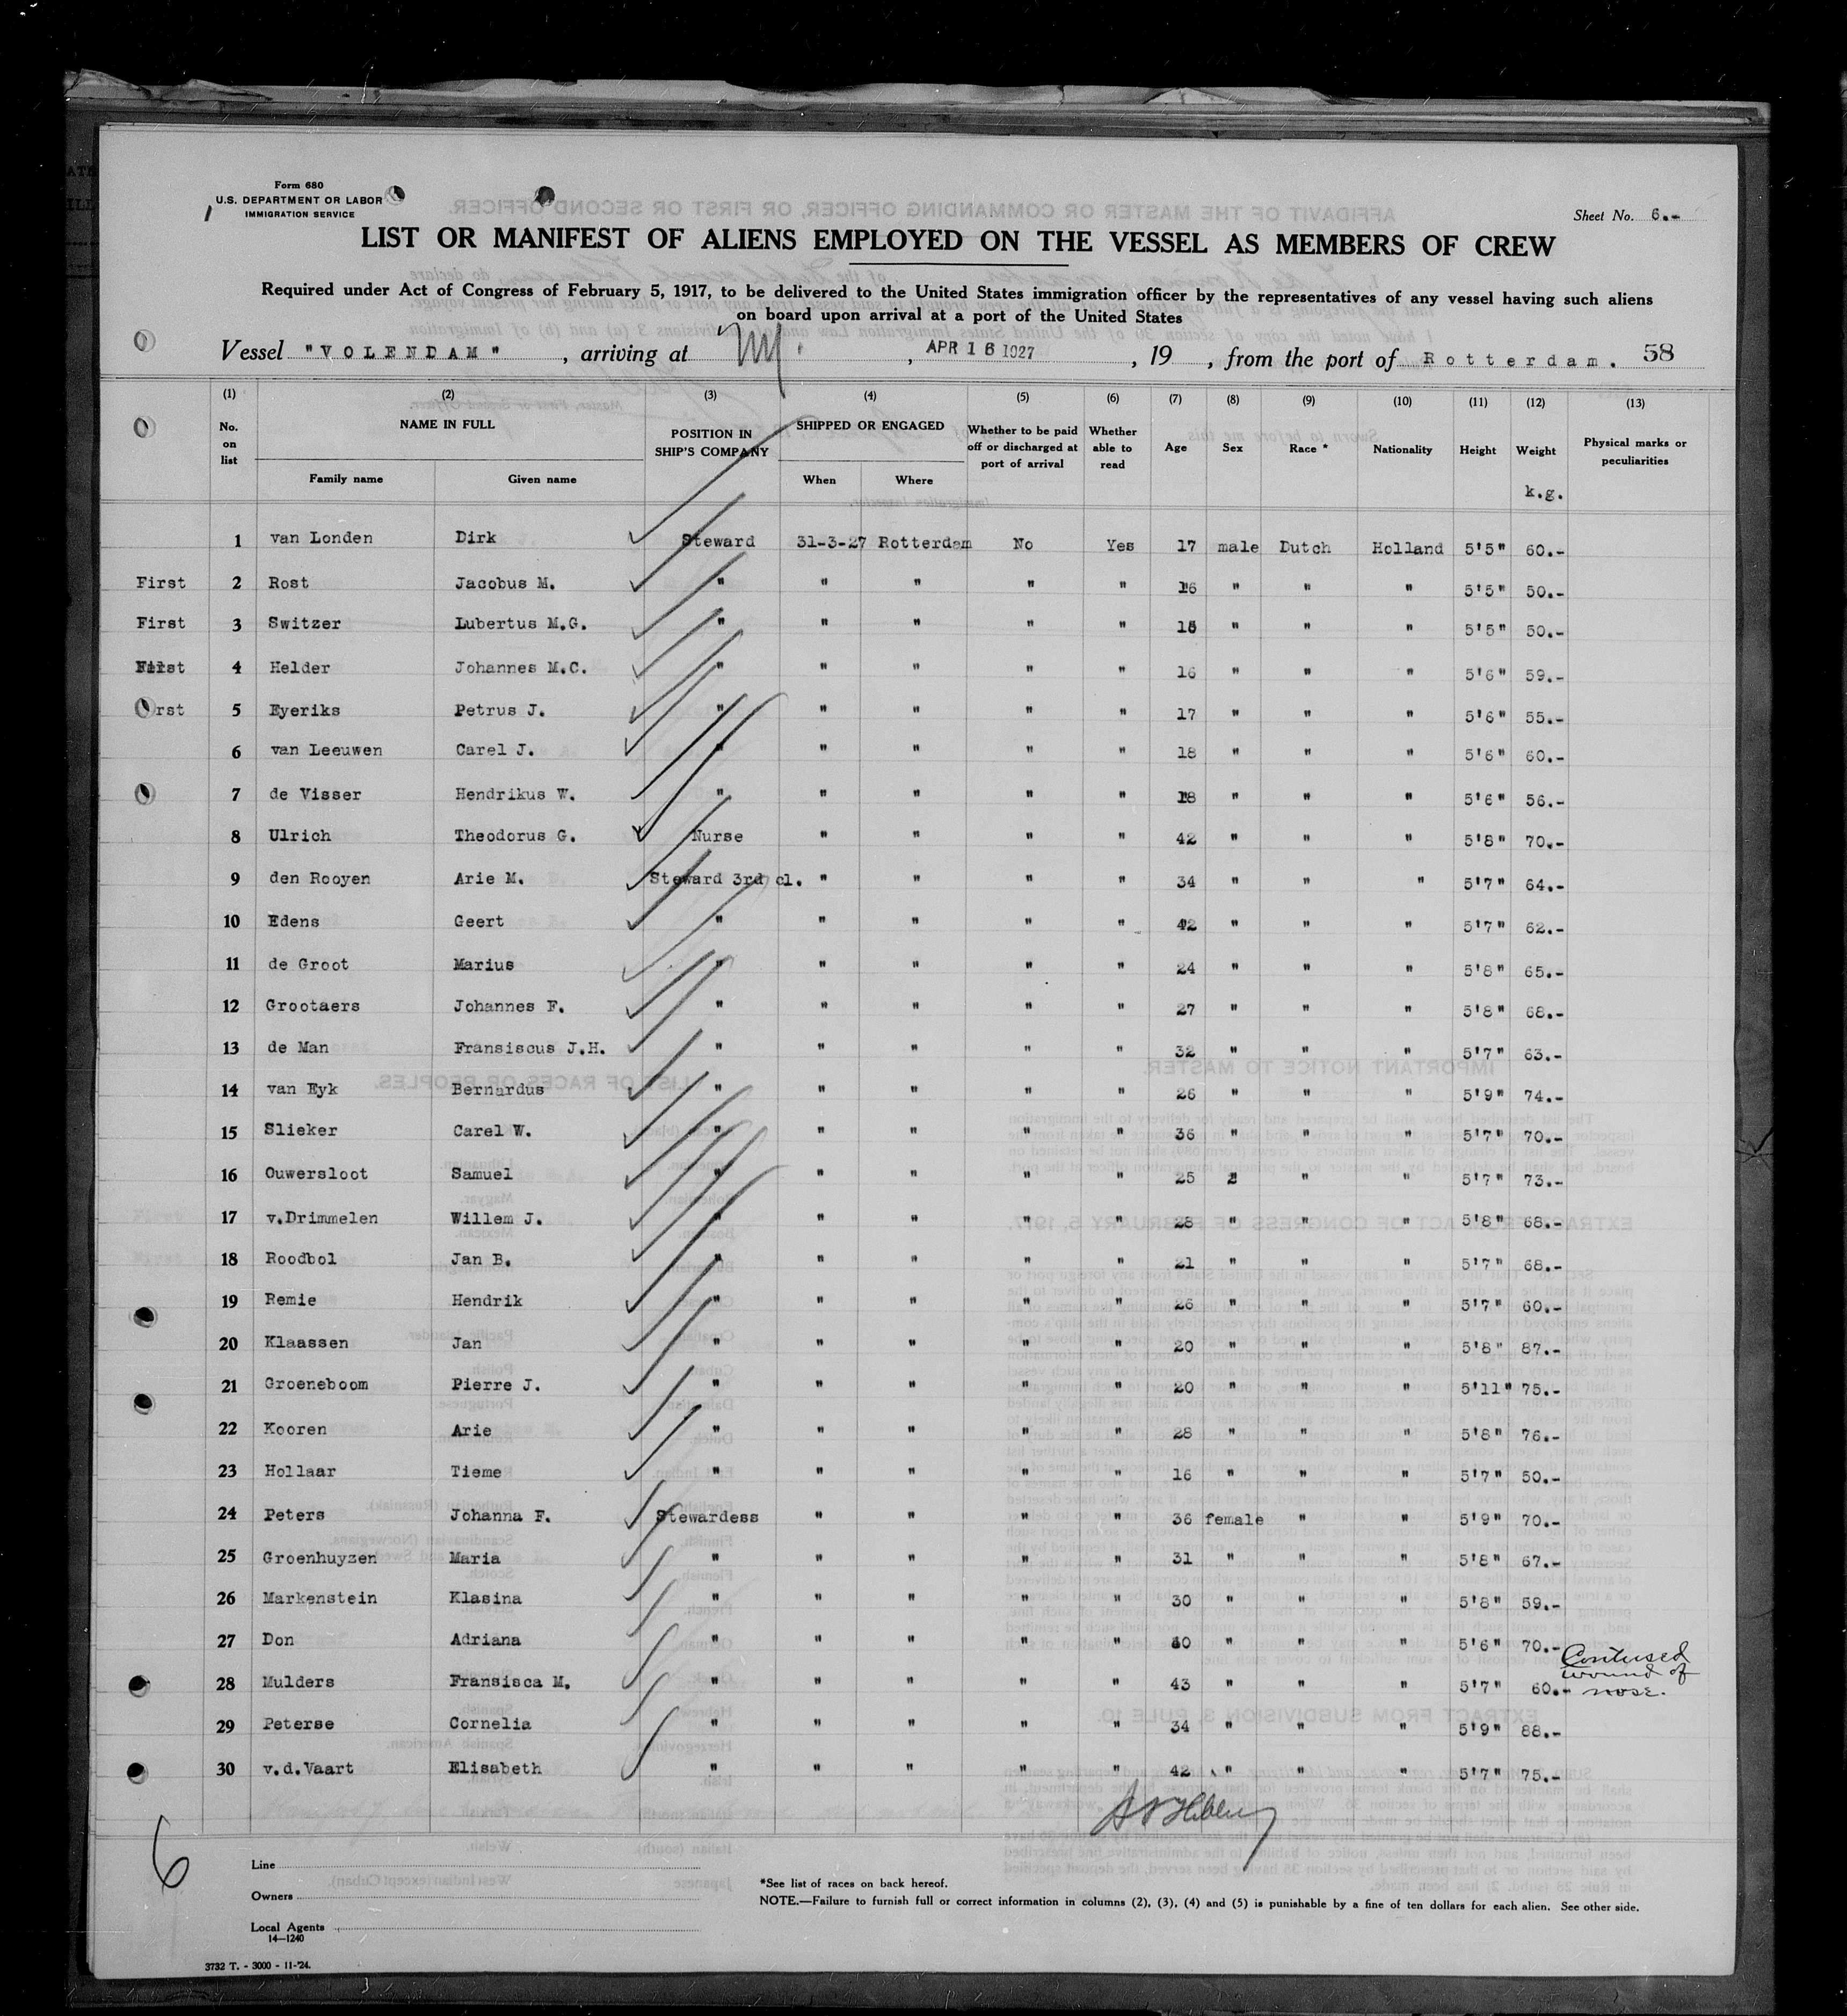 Form 680
U.S. DEPARTMENT OR LABOR
IMMIGRATION SERVICE
Sheet No. 6.-
LIST OR MANIFEST OF ALIENS EMPLOYED ON THE VESSEL AS MEMBERS OF CREW
Required under Act of Congress of February 5, 1917, to be delivered to the United States immigration officer by the representatives of any vessel having such aliens
on board upon arrival at a port of the United States
Vessel "VOLENDAM", arriving at NY., APR 16 1927, 19 , from the port of Rotterdam. 58
(1) (2) (3) (4) (5) (6) (7) (8) (9) (10) (11) (12) (13)
No. on list NAME IN FULL Family name Given name POSITION IN SHIP'S COMPANY SHIPPED OR ENGAGED When Where Whether to be paid off or discharged at port of arrival Whether able to read Age Sex Race * Nationality Height Weight k.g. Physical marks or peculiarities
1 van Londen Dirk Steward 31-3-27 Rotterdam No Yes 17 male Dutch Holland 5'5" 60.-
First 2 Rost Jacobus M. " " " " " 16 " " " 5'5" 50.-
First 3 Switzer Lubertus M.G. " " " " " " " " 5'5" 50.-
First 4 Helder Johannes M.C. " " " " " 16 " " " 5'6" 59.-
rst 5 Eyeriks Petrus J. " " " " " 17 " " " 5'6" 55.-
6 van Leeuwen Carel J. " " " " " 18 " " " 5'6" 60.-
7 de Visser Hendrikus W. " " " " " 18 " " " 5'6" 56.-
8 Ulrich Theodorus G. Nurse " " " " 42 " " " 5'8" 70.-
9 den Rooyen Arie M. Steward 3rd cl. " " " " 34 " " " 5'7" 64.-
10 Edens Geert " " " " " 42 " " " 5'7" 62.-
11 de Groot Marius " " " " " 24 " " " 5'8" 65.-
12 Grootaers Johannes F. " " " " " 27 " " " 5'8" 68.-
13 de Man Fransiscus J.H. " " " " " 32 " " " 5'7" 63.-
14 van Eyk Bernardus " " " " " 26 " " " 5'9" 74.-
15 Slieker Carel W. " " " " " 36 " " " 5'7" 70.-
16 Ouwersloot Samuel " " " " " 25 " " " 5'7" 73.-
17 v.Drimmelen Willem J. " " " " " 28 " " " 5'8" 68.-
18 Roodbol Jan B. " " " " " 21 " " " 5'7" 68.-
19 Remie Hendrik " " " " " 26 " " " 5'7" 60.-
20 Klaassen Jan " " " " " 20 " " " 5'8" 87.-
21 Groeneboom Pierre J. " " " " " 20 " " " 5'11" 75.-
22 Kooren Arie " " " " " 28 " " " 5'8" 76.-
23 Hollaar Tieme " " " " " 16 " " " 5'7" 50.-
24 Peters Johanna F. Stewardess " " " " 36 female " " 5'9" 70.-
25 Groenhuyzen Maria " " " " " 31 " " " 5'8" 67.-
26 Markenstein Klasina " " " " " 30 " " " 5'8" 59.-
27 Don Adriana " " " " " " " " 5'6" 70.-
28 Mulders Fransisca M. " " " " " 43 " " " 5'7" 60.- Contused wound of nose.
29 Peterse Cornelia " " " " " 34 " " " 5'9" 88.-
30 v.d.Vaart Elisabeth " " " " " 42 " " " 5'7" 75.-
6
Line
Owners
Local Agents
14—1240
*See list of races on back hereof.
NOTE.—Failure to furnish full or correct information in columns (2), (3), (4) and (5) is punishable by a fine of ten dollars for each alien. See other side.
3732 T. - 3000 - 11-'24.